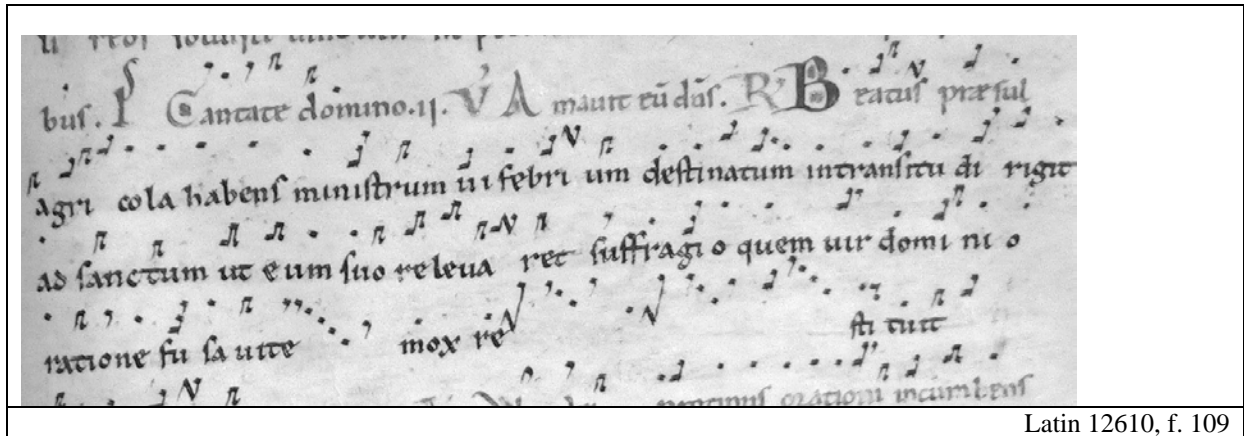 bus. Cantate domino.ii. V Amauit eū dn̄s. R Beatus præsul
agri cola habens ministrum ui febri um destinatum intransitu di rigit
ad sanctum ut eum suo releua ret suffragi o quem uir domi ni o
ratione fu sa uite mox re sti tuit
orationi incumbens
Latin 12610, f. 109